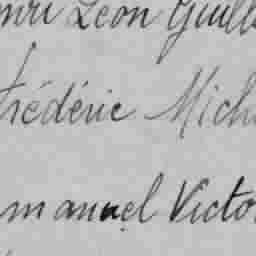 nri Léon Guill
Frédéric Mich
manuel Victo